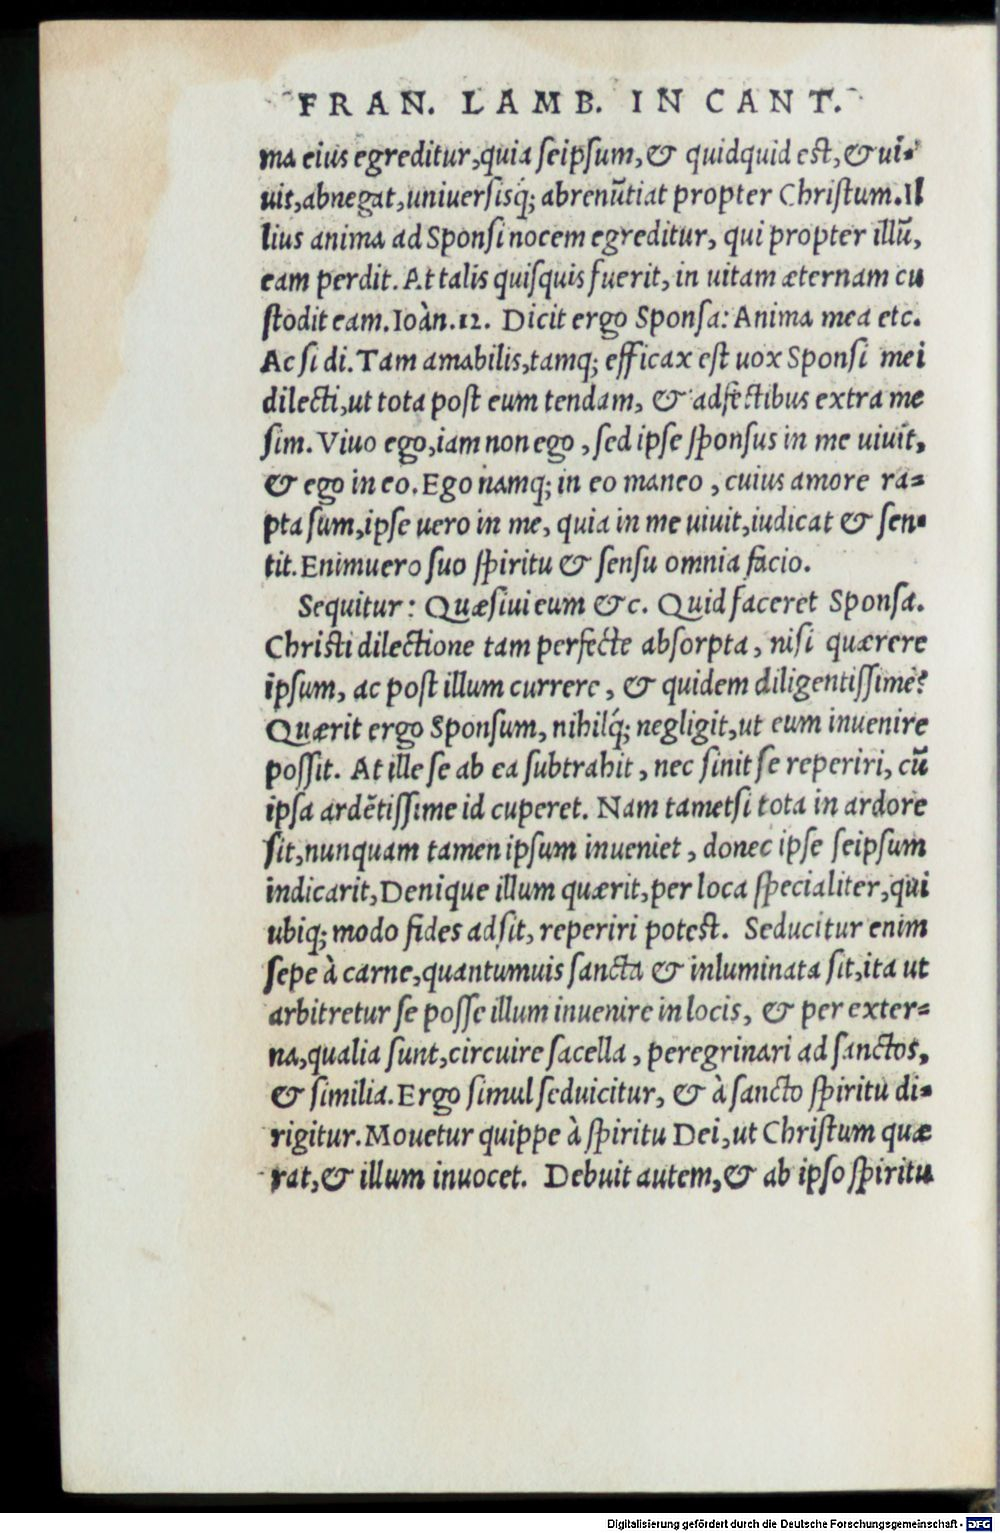 FRAN. LAMB. IN CANT.
ma eius egreditur,quia ſeipſum,& quidquid eſt,& ui-
uit,abnegat,uniuerſisq́; abrenũtiat propter Chriſtum.Il
lius anima ad Sponſi uocem egreditur, qui propter illũ,
eam perdit. At talis quiſquis fuerit, in uitam æternam cu
ſtodit eam.Ioàn.12. Dicit ergo Sponſa: Anima mea etc.
Ac ſi di.Tam amabilis,tamq; efficax eſt uox Sponſi mei
dilecti,ut tota poſt eum tendam, & adfectibus extra me
ſim. Viuo ego,iam non ego , ſed ipſe ſponſus in me uiuit,
& ego in eo.Ego namq; in eo maneo , cuius amore ra-
pta ſum,ipſe uero in me, quia in me uiuit,iudicat & ſen-
tit.Enimuero ſuo ſpiritu & ſenſu omnia facio.
Sequitur: Quæſiui eum &c. Quid faceret Sponſa.
Chriſti dilectione tam perfecte abſorpta, niſi quærere
ipſum, ac poſt illum currere , & quidem diligentiſſime?
Quærit ergo Sponſum, nihilq́; negligit,ut eum inuenire
poſſit. At ille ſe ab ea ſubtrahit , nec ſinit ſe reperiri, cũ
ipſa ardẽtiſſime id cuperet. Nam tametſi tota in ardore
ſit,nunquam tamen ipſum inueniet , donec ipſe ſeipſum
indicarit,Denique illum quærit,per loca ſpecialiter,qui
ubiq; modo fides adſit, reperiri poteſt. Seducitur enim
ſepe à carne,quantumuis ſancta & inluminata ſit,ita ut
arbitretur ſe poſſe illum inuenire in locis, & per exter-
na,qualia ſunt,circuire ſacella , peregrinari ad ſanctos,
& ſimilia.Ergo ſimul ſeduicitur, & à ſancto ſpiritu di-
rigitur.Mouetur quippe à ſpiritu Dei,ut Chriſtum quæ
rat,& illum inuocet. Debuit autem,& ab ipſo ſpiritu
Digitalisierung gefördert durch die Deutsche Forschungsgemeinschaft - DFG